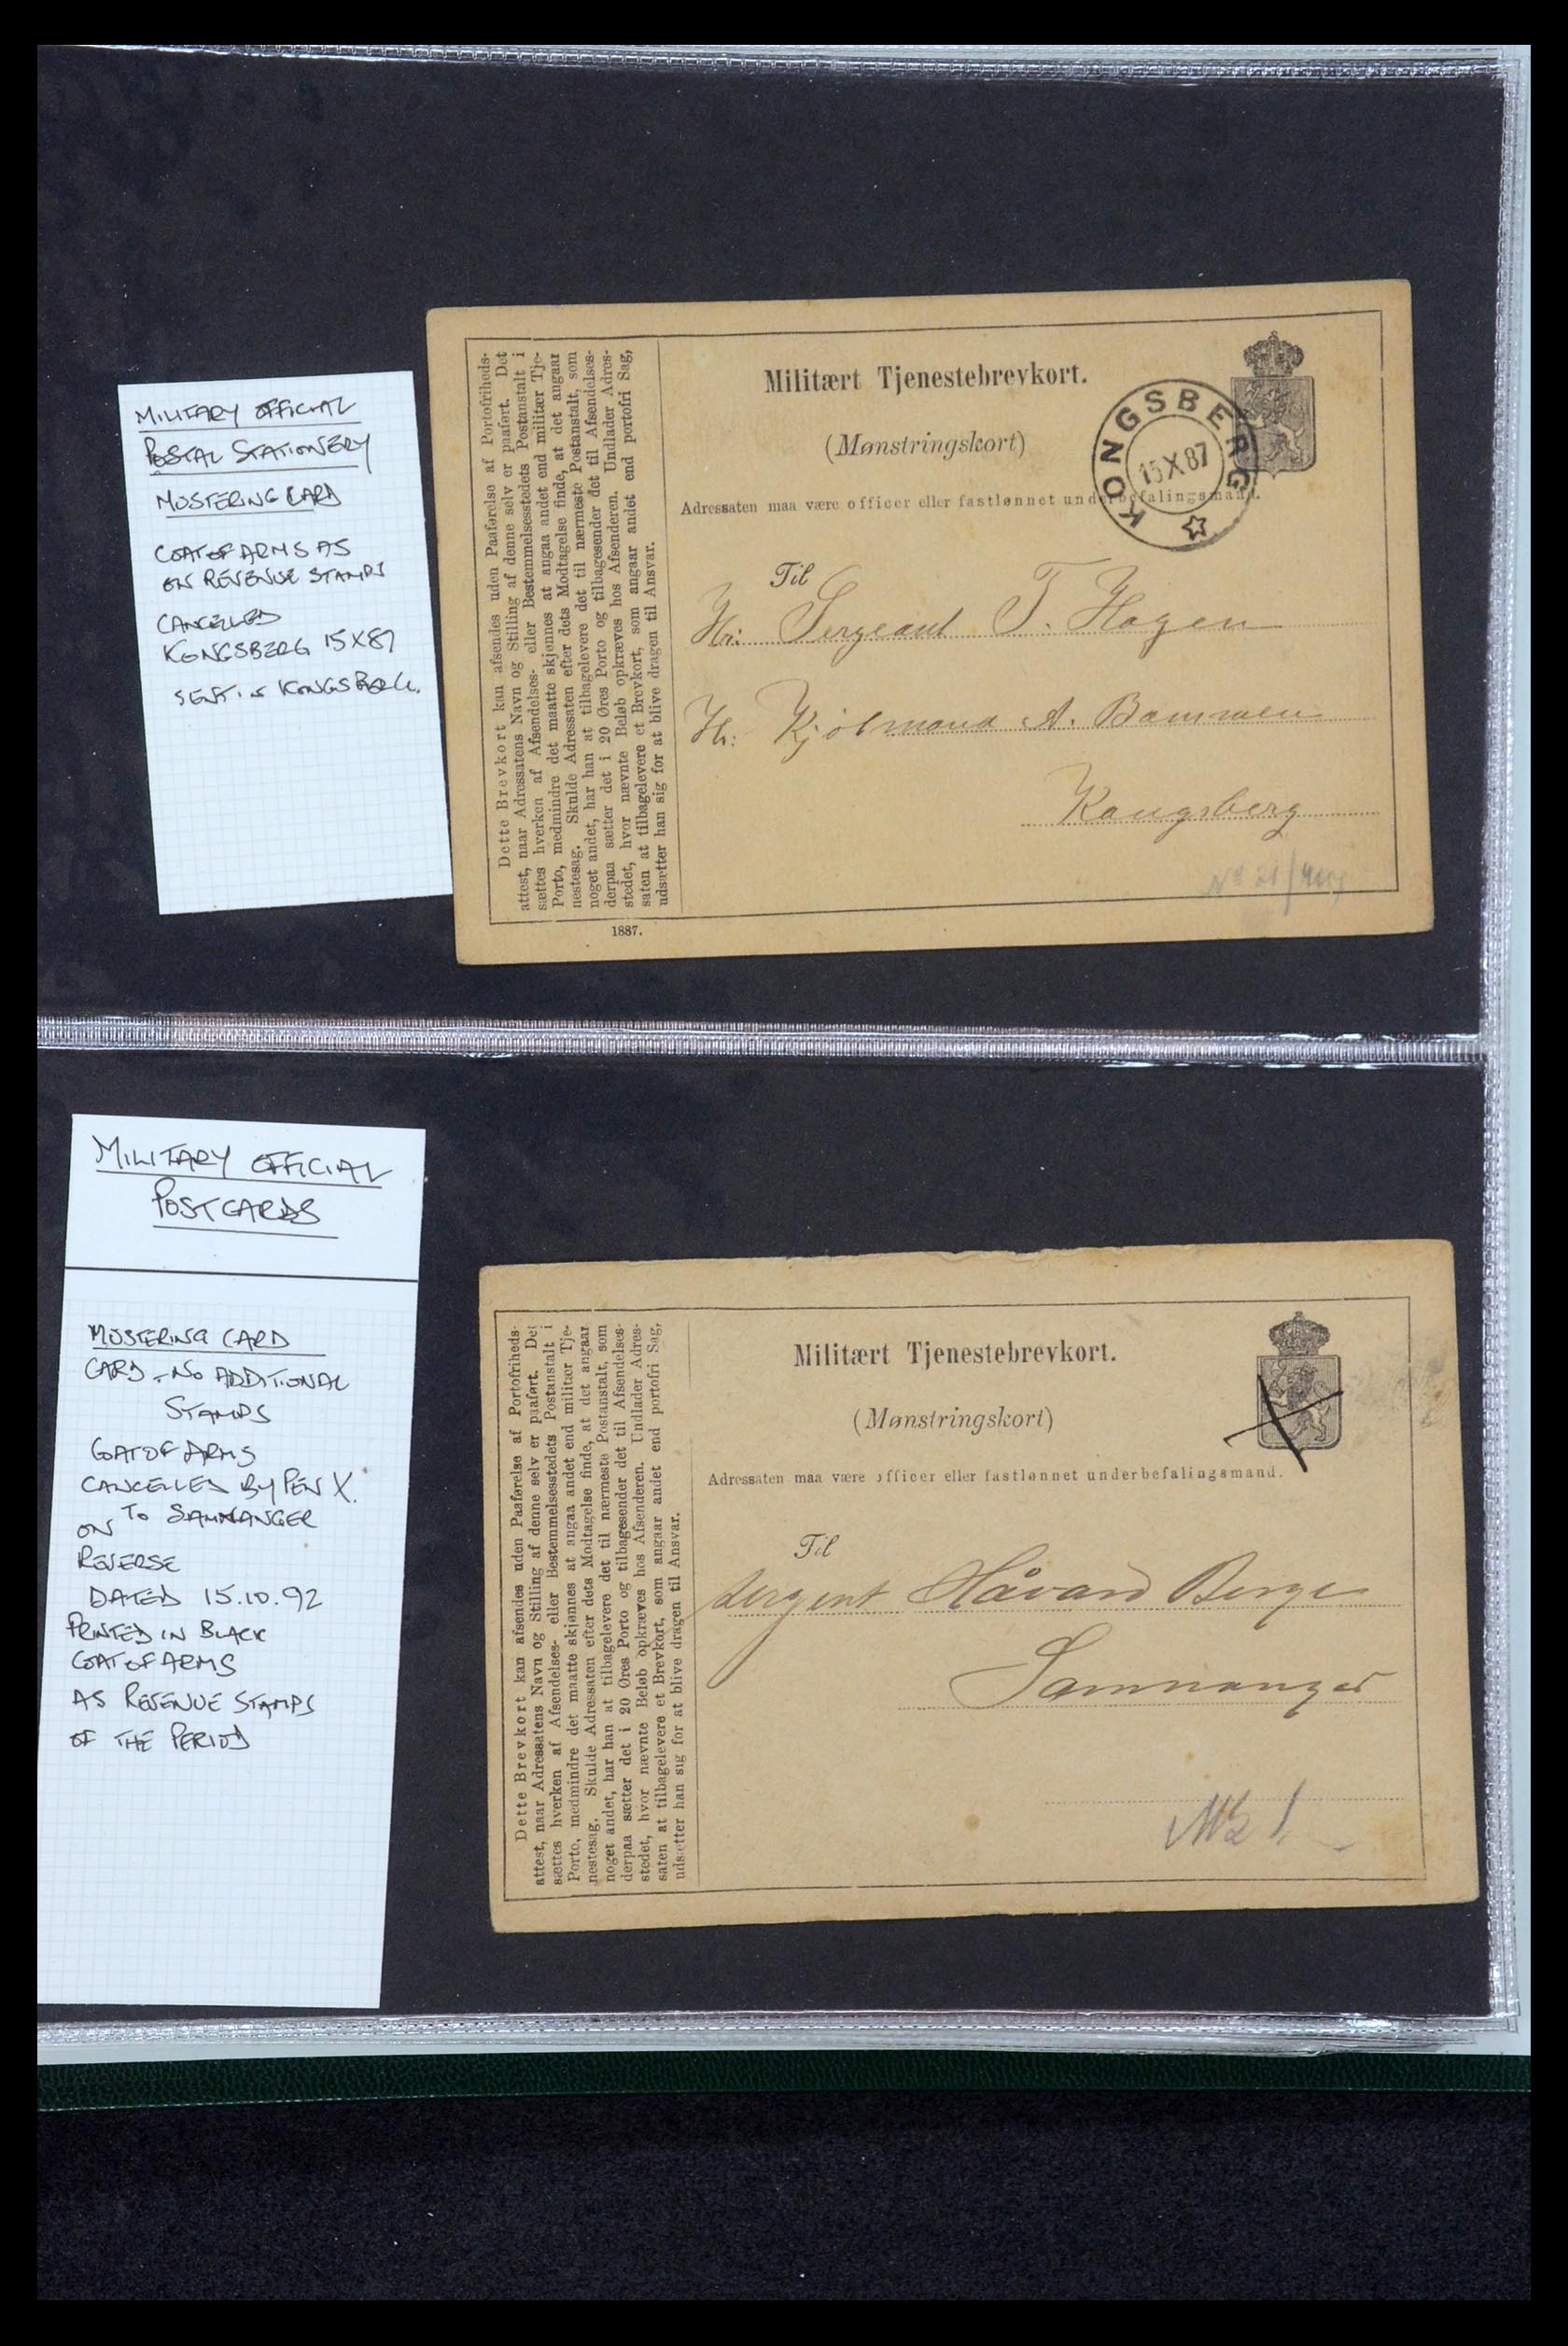 MILITARY OFFICIAL
POSTAL STATIONERY
MUSTERING CARD
COAT OF ARMS AS
ON REVENUE STAMPS
CANCELLED
KONGSBERG 15 X 87
SENT IN KONGSBERG.
Dette Brevkort kan afsendes uden Paaførelse af Portofriheds-
attest, naar Adressatens Navn og Stilling af denne selv er paaført. Det
sættes hverken af Afsendelses- eller Bestemmelsesstedets Postanstalt i
Porto, medmindre det maatte skjønnes at angaa andet end militær Tje-
nestesag. Skulde Adressaten efter dets Modtagelse finde, at det angaar
noget andet, har han at tilbagelevere det til nærmeste Postanstalt, som
derpaa sætter det i 20 Øres Porto og tilbagesender det til Afsendelses-
stedet, hvor nævnte Beløb opkræves hos Afsenderen. Undlader Adres-
saten at tilbagelevere et Brevkort, som angaar andet end portofri Sag,
udsætter han sig for at blive dragen til Ansvar.
1887.
Militært Tjenestebrevkort.
(Mønstringskort)
KONGSBERG
15 X 87
Adressaten maa være officer eller fastlønnet underbefalingsmand.
Til
Hr: Sergeant T. Hagen
Hr: A. Bammen
Kongsberg
MILITARY OFFICIAL
POSTCARDS
MUSTERING CARD
CARD - NO ADDITIONAL
STAMPS
COAT OF ARMS
CANCELLED BY PEN X.
ON TO SAMNANGER
REVERSE
DATED 15.10.92
PRINTED IN BLACK
COAT OF ARMS
AS REVENUE STAMPS
OF THE PERIOD
Dette Brevkort kan afsendes uden Paaførelse af Portofriheds-
attest, naar Adressatens Navn og Stilling af denne selv er paaført. Det
sættes hverken af Afsendelses- eller Bestemmelsesstedets Postanstalt i
Porto, medmindre det maatte skjønnes at angaa andet end militær Tje-
nestesag. Skulde Adressaten efter dets Modtagelse finde, at det angaar
noget andet, har han at tilbagelevere det til nærmeste Postanstalt, som
derpaa sætter det i 20 Øres Porto og tilbagesender det til Afsendelses-
stedet, hvor nævnte Beløb opkræves hos Afsenderen. Undlader Adres-
saten at tilbagelevere et Brevkort, som angaar andet end portofri Sag,
udsætter han sig for at blive dragen til Ansvar.
Militært Tjenestebrevkort.
(Mønstringskort)
Adressaten maa være officer eller fastlønnet underbefalingsmand.
Til
Sergent Håvard Berge
Samnanger